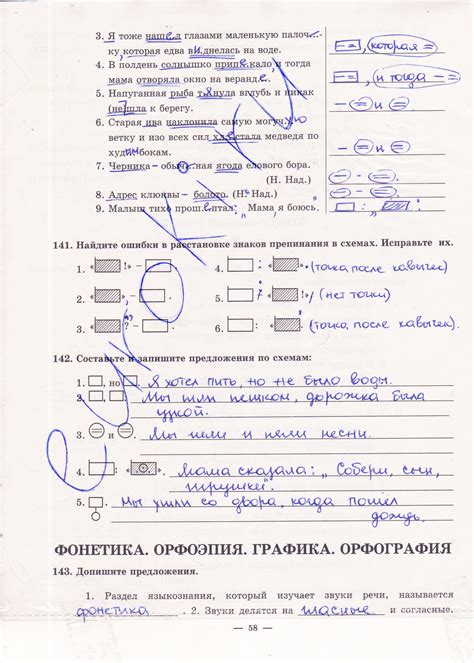 3. Я тоже нашел глазами маленькую палоч-
ку, которая едва виднелась на воде.
, которая
4. В полдень солнышко припекало и тогда
мама отворяла окно на веранде.
, и тогда
5. Напуганная рыба тянула вглубь и никак
(не)шла к берегу.
и
6. Старая ива наклонила самую могучую
ветку и изо всех сил хлестала медведя по
худым бокам.
и
7. Черника – обычная ягода елового бора.
(Н. Над.)
8. Адрес клюквы – болото. (Н. Над.)
9. Малыш тихо прошептал: „Мама, я боюсь."
141. Найдите ошибки в расстановке знаков препинания в схемах. Исправьте их.
1. « !» –
4. : « » (точка после кавычек)
2. « , –
5. : « » (нет точки)
3. « ?» –
6. : « » (точка, после кавычек).
142. Составьте и запишите предложения по схемам:
1. , но . Я хотел пить, но не было воды.
2. , . Мы шли пешком, дорожка была
узкой.
3. и . Мы шли и пели песни.
4. : « ». Мама сказала: „Собери, сын,
игрушки".
5. Мы ушли со двора, когда пошел
дождь.
ФОНЕТИКА. ОРФОЭПИЯ. ГРАФИКА. ОРФОГРАФИЯ
143. Допишите предложения.
1. Раздел языкознания, который изучает звуки речи, называется
фонетика . 2. Звуки делятся на гласные и согласные.
— 58 —